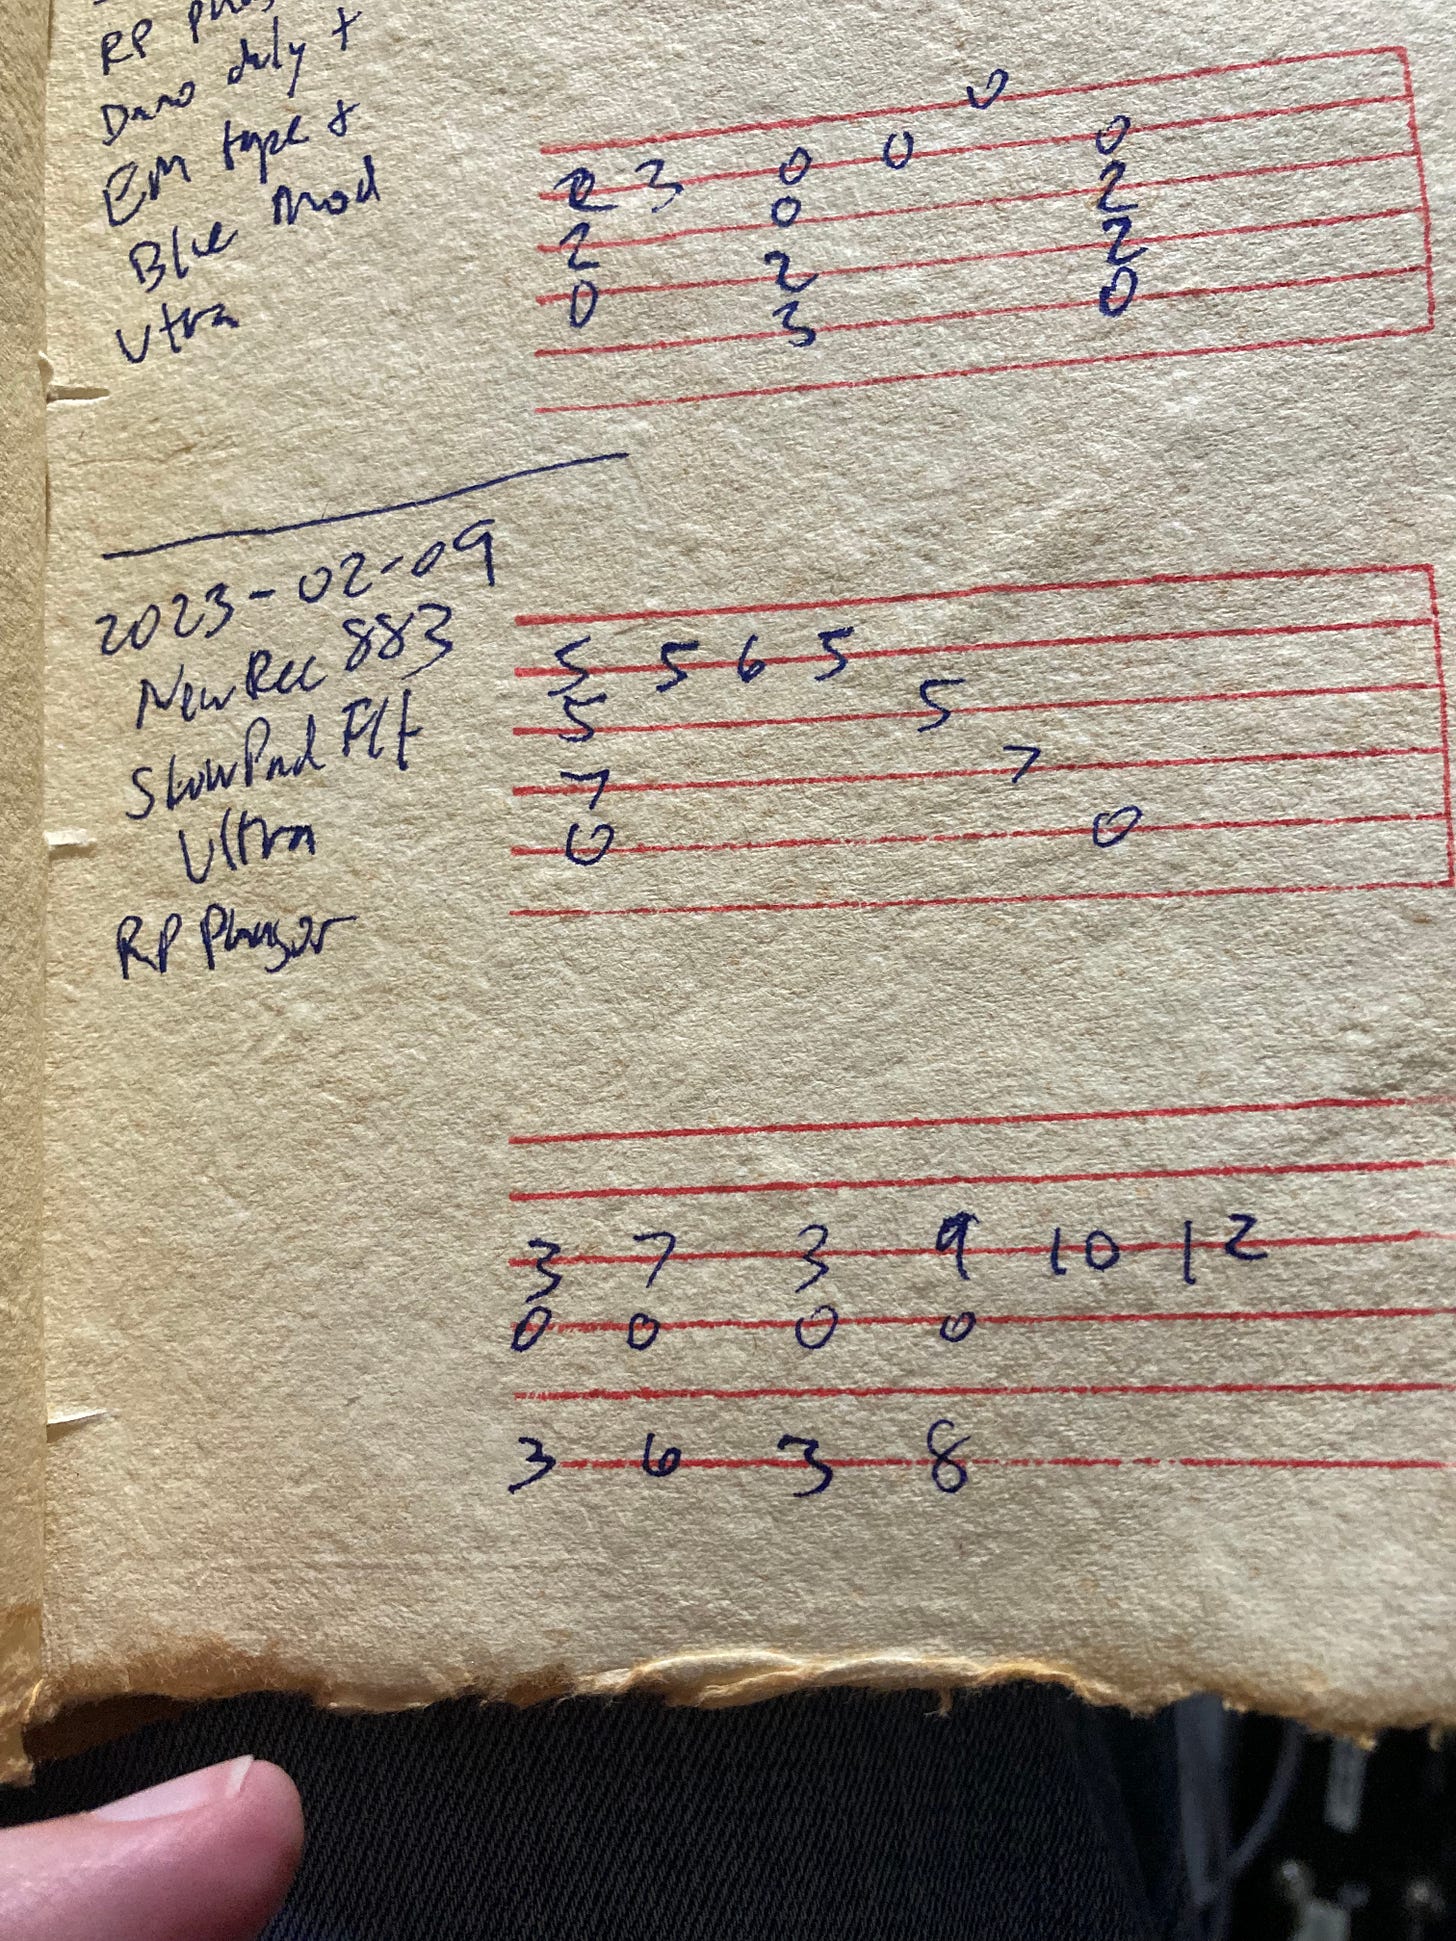 RP
Dano duly +
EM tape +
Blue Mod
Utra
0
2 3 0 0 0
2 0 2
0 2 2
3 0
2023-02-09
NewRec 883
SlowPad Flt
Ultra
RP Phasor
5 5 6 5
5 5
7 7
0 0
3 7 3 9 10 12
0 0 0 0
3 6 3 8